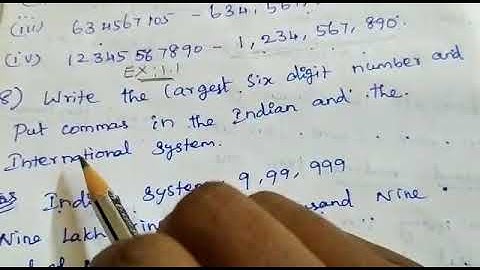 (iii) 634567105 - 634,
(iv) 12345 567890 - 1,234,567,890.
EX:1.1
8) Write the largest six digit number and
Put commas in the Indian and the
International System.
System 9,99,999
Nine Lakh Nine